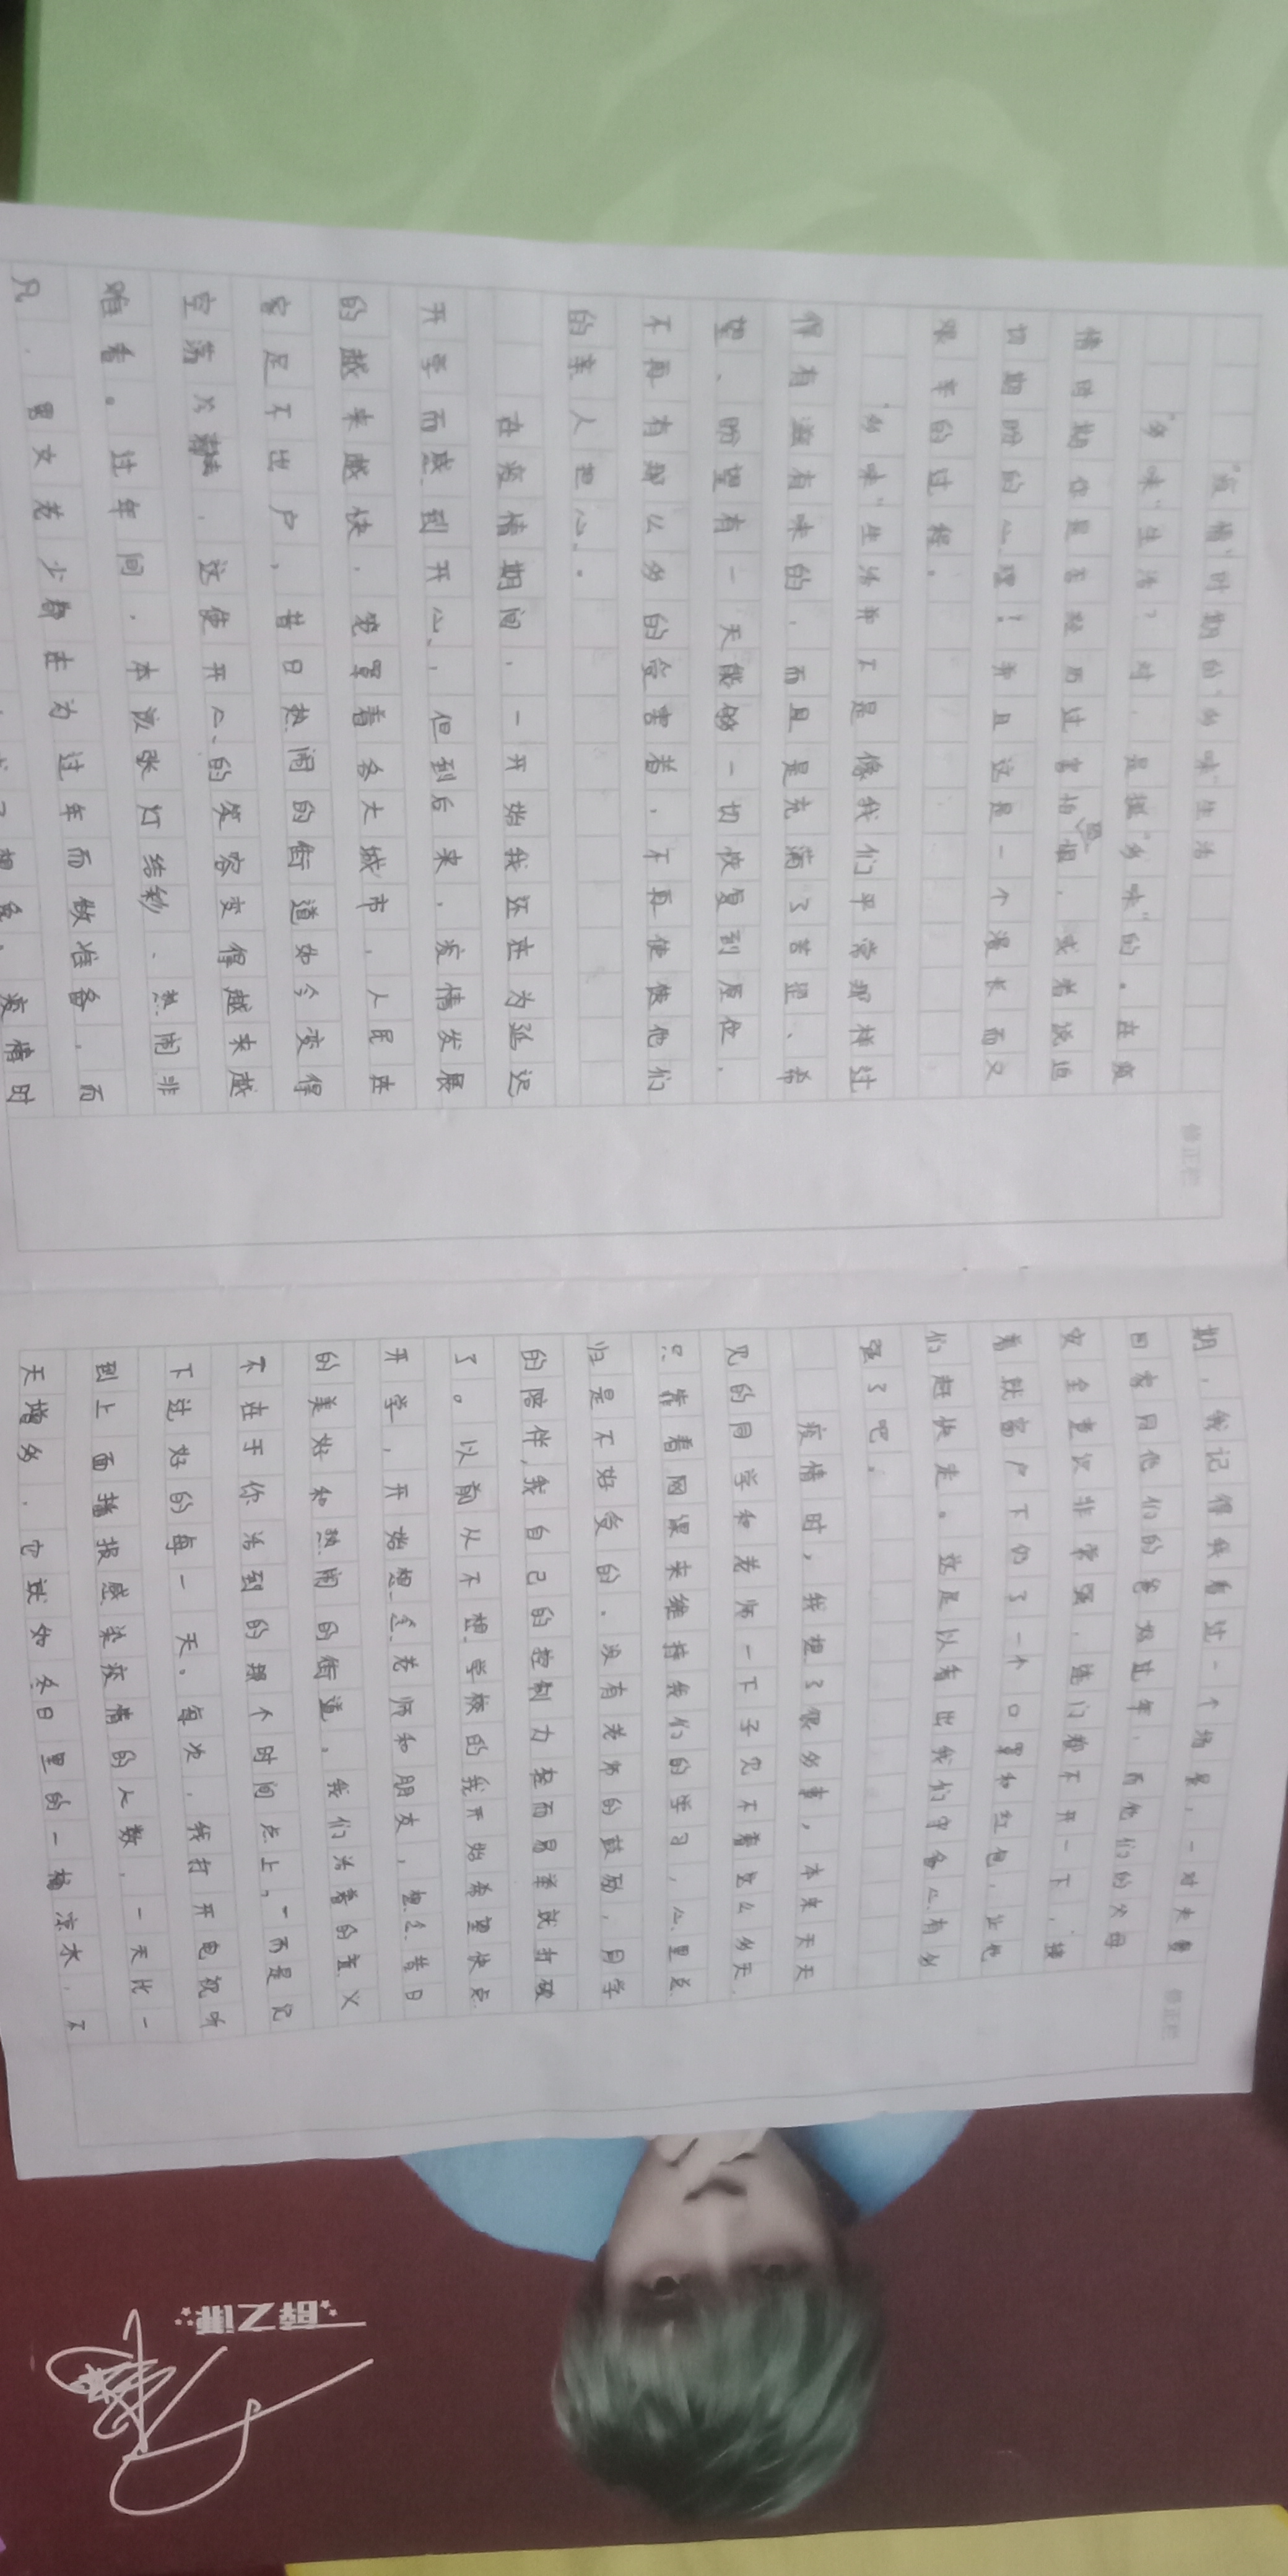 "疫情"时期的"多味"生活
"多味"生活?对,是挺"多味"的。在疫
情时期你是否经历过害怕恐惧,或者说迫
切期盼的心理?并且这是一个漫长而又
艰辛的过程。
"多味"生活并不是像我们平常那样过
得有滋有味的,而且是充满了苦涩、希
望、盼望有一天能够一切恢复到原位,
不再有那么多的受害者,不再使使他们
的亲人担心。
在疫情期间,一开始我还在为延迟
开学而感到开心,但到后来,疫情发展
的越来越快,笼罩着各大城市,人民在
家足不出户,昔日热闹的街道如今变得
空荡冷清,这使开心的笑容变得越来越
难看。过年间,本该张灯结彩、热闹非
凡,男女老少都在为过年而做准备,而
疫情时
期,我记得我看过一个场景,一对夫妻
回家同他们的爸妈过年,而他们的父母
安全意识非常强,连门都不开一下,接
着就窗户下仍了一个口罩和红包,让他
们赶快走。这足以看出我们守备心有多
强了吧。
疫情时,我想了很多事,本来天天
见的同学和老师一下子见不着这么多天,
只靠看网课来维持我们的学习,心里总
归是不好受的,没有老师的鼓励,同学
的陪伴,我自己的控制力轻而易举就打破
了。以前从不想学校的我开始希望快点
开学,开始想念老师和朋友,想念昔日
的美好和热闹的街道。我们活着的意义
不在于你活到的那个时间点上,而是兄
下过好的每一天。每次,我打开电视听
到上面播报感染疫情的人数,一天比一
天增多,它就如冬日里的一桶凉水,不
修正栏
修正栏
薛之谦